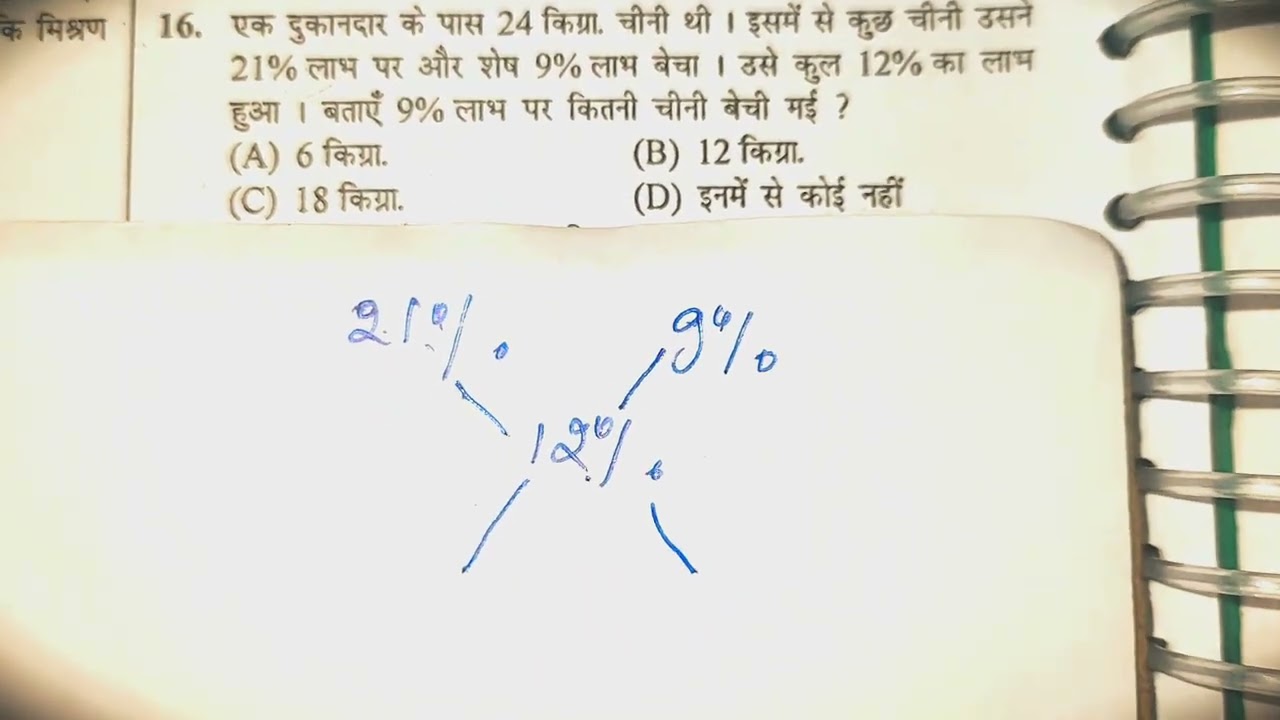 के मिश्रण
16. एक दुकानदार के पास 24 किग्रा. चीनी थी । इसमें से कुछ चीनी उसने
21% लाभ पर और शेष 9% लाभ बेचा । उसे कुल 12% का लाभ
हुआ । बताएँ 9% लाभ पर कितनी चीनी बेची गई ?
(A) 6 किग्रा. (B) 12 किग्रा.
(C) 18 किग्रा. (D) इनमें से कोई नहीं
21% 9%
12%